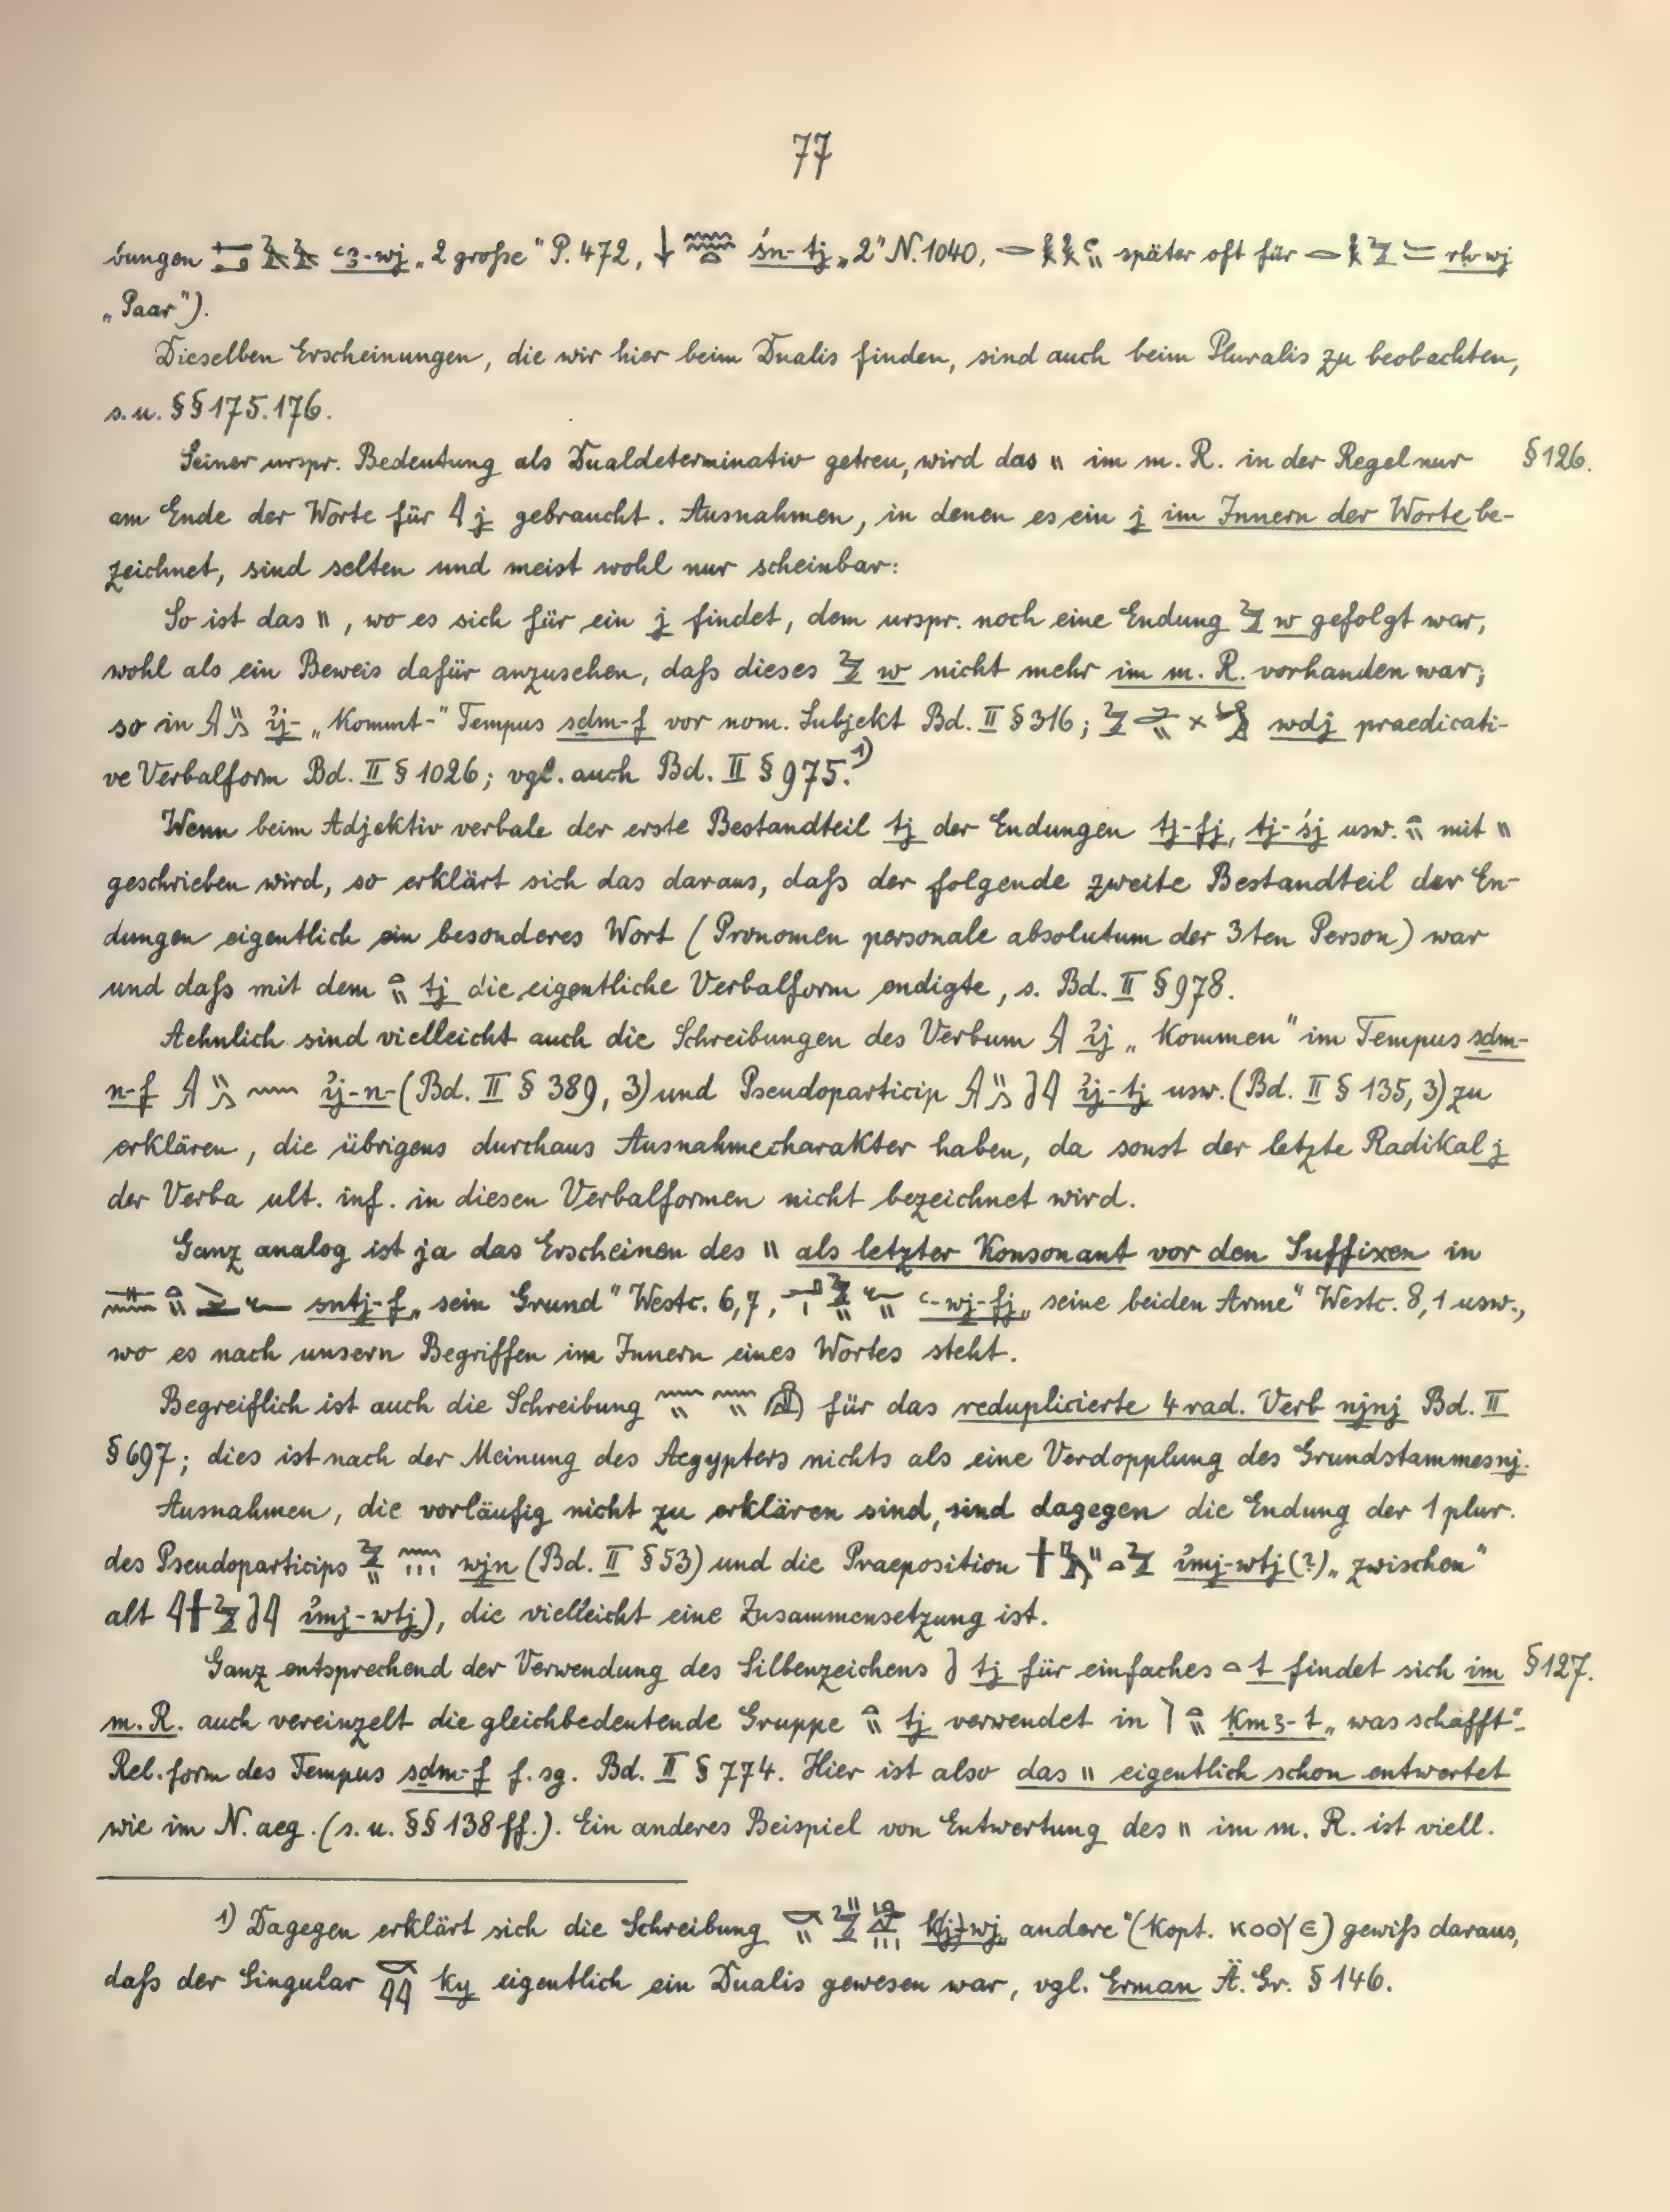 77
bungen ꜥꜣ-wj „2 große“ P. 472, śn-tj „2“ N. 1040, später oft für rḥ-wj
„Paar“).
Dieselben Erscheinungen, die wir hier beim Dualis finden, sind auch beim Pluralis zu beobachten,
s. u. §§ 175. 176.
Seiner urspr. Bedeutung als Dualdeterminativ getreu, wird das \\ im m. R. in der Regel nur § 126.
am Ende der Worte für 𓇋 j gebraucht. Ausnahmen, in denen es ein j im Innern der Worte be-
zeichnet, sind selten und meist wohl nur scheinbar:
So ist das \\, wo es sich für ein j findet, dem urspr. noch eine Endung 𓅱 w gefolgt war,
wohl als ein Beweis dafür anzusehen, daß dieses 𓅱 w nicht mehr im m. R. vorhanden war;
so in ꞽj- „Kommt-“ Tempus sdm-f vor nom. Subjekt Bd. II § 316; wdj praedicati-
ve Verbalform Bd. II § 1026; vgl. auch Bd. II § 975.¹)
Wenn beim Adjektiv verbale der erste Bestandteil tj der Endungen tj-fj, tj-śj usw. 𓏏𓏭 mit \\
geschrieben wird, so erklärt sich das daraus, daß der folgende zweite Bestandteil der En-
dungen eigentlich ein besonderes Wort (Pronomen personale absolutum der 3ten Person) war
und daß mit dem 𓏏𓏭 tj die eigentliche Verbalform endigte, s. Bd. II § 978.
Aehnlich sind vielleicht auch die Schreibungen des Verbum ꞽj „Kommen“ im Tempus sdm-
n-f ꞽj-n- (Bd. II § 389, 3) und Pseudoparticip ꞽj-tj usw. (Bd. II § 135, 3) zu
erklären, die übrigens durchaus Ausnahmecharakter haben, da sonst der letzte Radikal j
der Verba ult. inf. in diesen Verbalformen nicht bezeichnet wird.
Ganz analog ist ja das Erscheinen des \\ als letzter Konsonant vor den Suffixen in
sntj-f „sein Grund“ Westc. 6,7, ꜥ-wj-fj „seine beiden Arme“ Westc. 8,1 usw.,
wo es nach unsern Begriffen im Innern eines Wortes steht.
Begreiflich ist auch die Schreibung für das reduplicierte 4 rad. Verb njnj Bd. II
§ 697; dies ist nach der Meinung des Aegypters nichts als eine Verdopplung des Grundstammes nj.
Ausnahmen, die vorläufig nicht zu erklären sind, sind dagegen die Endung der 1 plur.
des Pseudoparticips wjn (Bd. II § 53) und die Praeposition ꞽmj-wtj (?) „zwischen“
alt ꞽmj-wtj), die vielleicht eine Zusammensetzung ist.
Ganz entsprechend der Verwendung des Silbenzeichens tj für einfaches 𓏏 t findet sich im § 127.
m. R. auch vereinzelt die gleichbedeutende Gruppe 𓏏𓏭 tj verwendet in kmꜣ-t „was schafft“-
Rel. form des Tempus sdm-f f. sg. Bd. II § 774. Hier ist also das \\ eigentlich schon entwertet
wie im N. aeg. (s. u. §§ 138 ff.). Ein anderes Beispiel von Entwertung des \\ im m. R. ist viell.
1) Dagegen erklärt sich die Schreibung k(j)-wj „andere“ (kopt. ⲕⲟⲟⲩⲉ) gewiß daraus,
daß der Singular ky eigentlich ein Dualis gewesen war, vgl. Erman Ä. Gr. § 146.